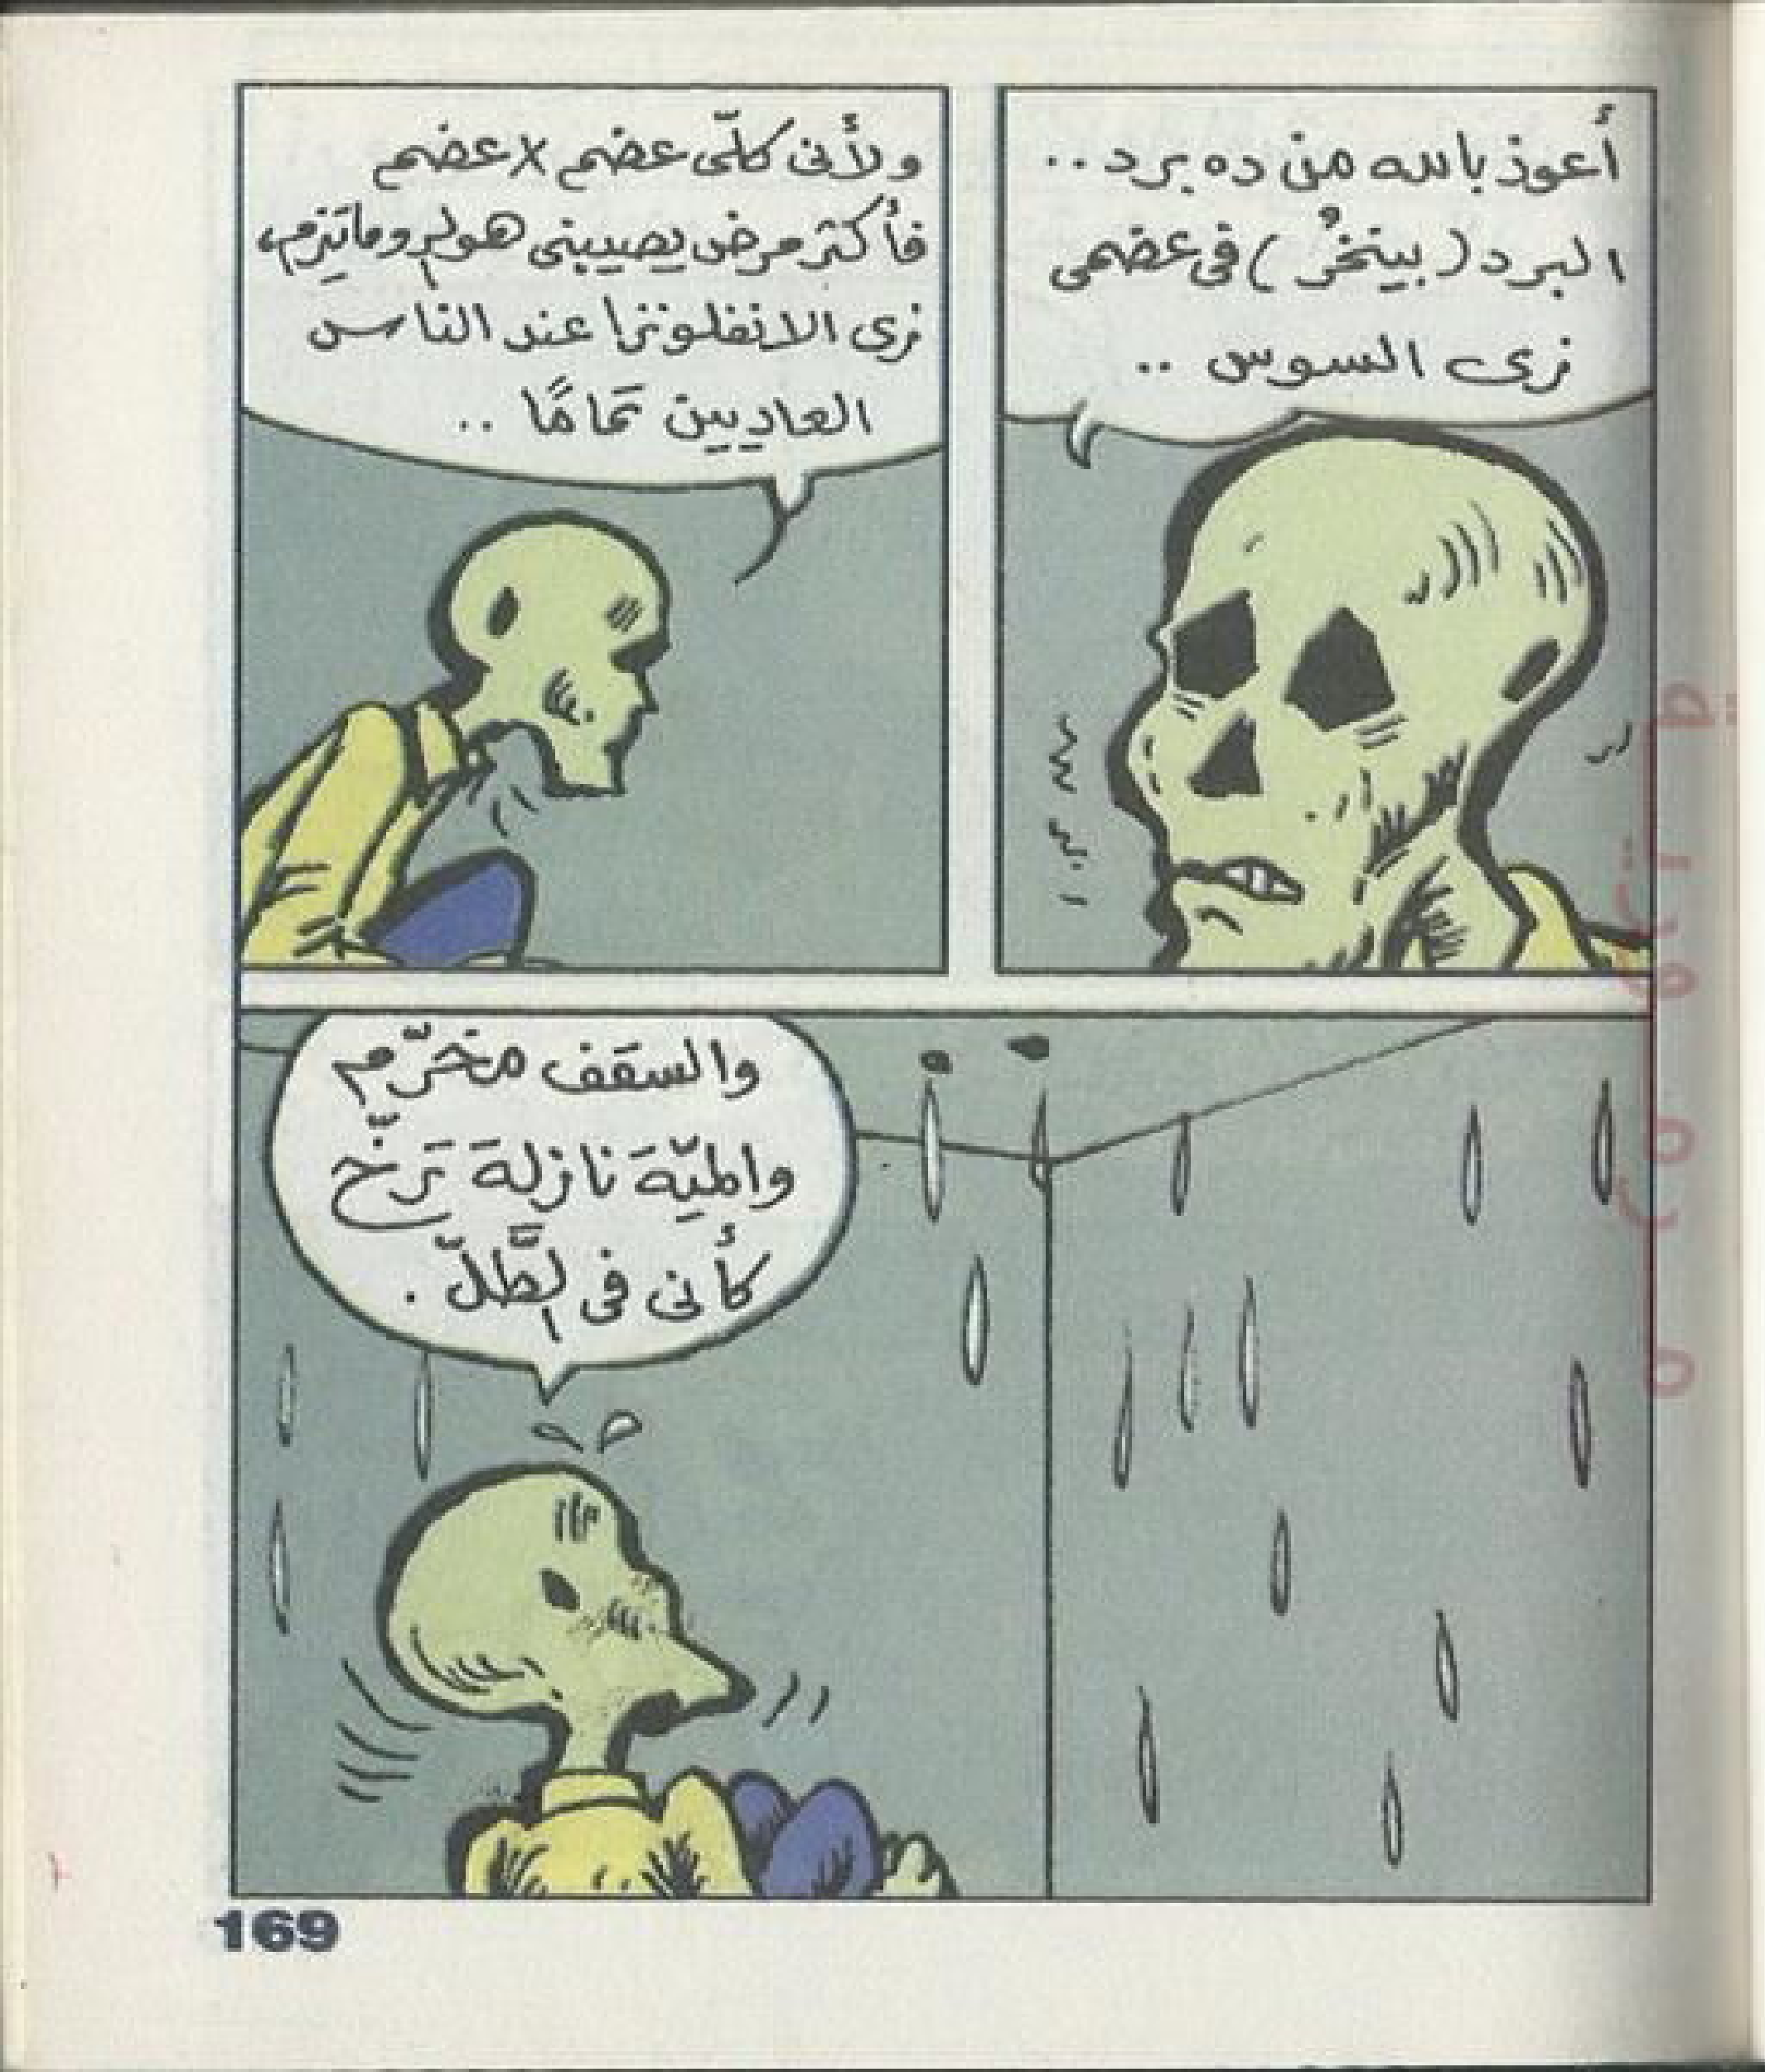 أعوذ بالله من ده برد..
البرد (بينخُر) فى عضمى
زى السوس ..
ولأنى كلّى عضم x عضم
فأكتر مرض يصيبنى هو
زى الانفلونزا عند الناس
العاديين تمامًا ..
والسقف مخرّم
والميّة نازلة ترخّ
كأنى فى الطَّلّ .
169